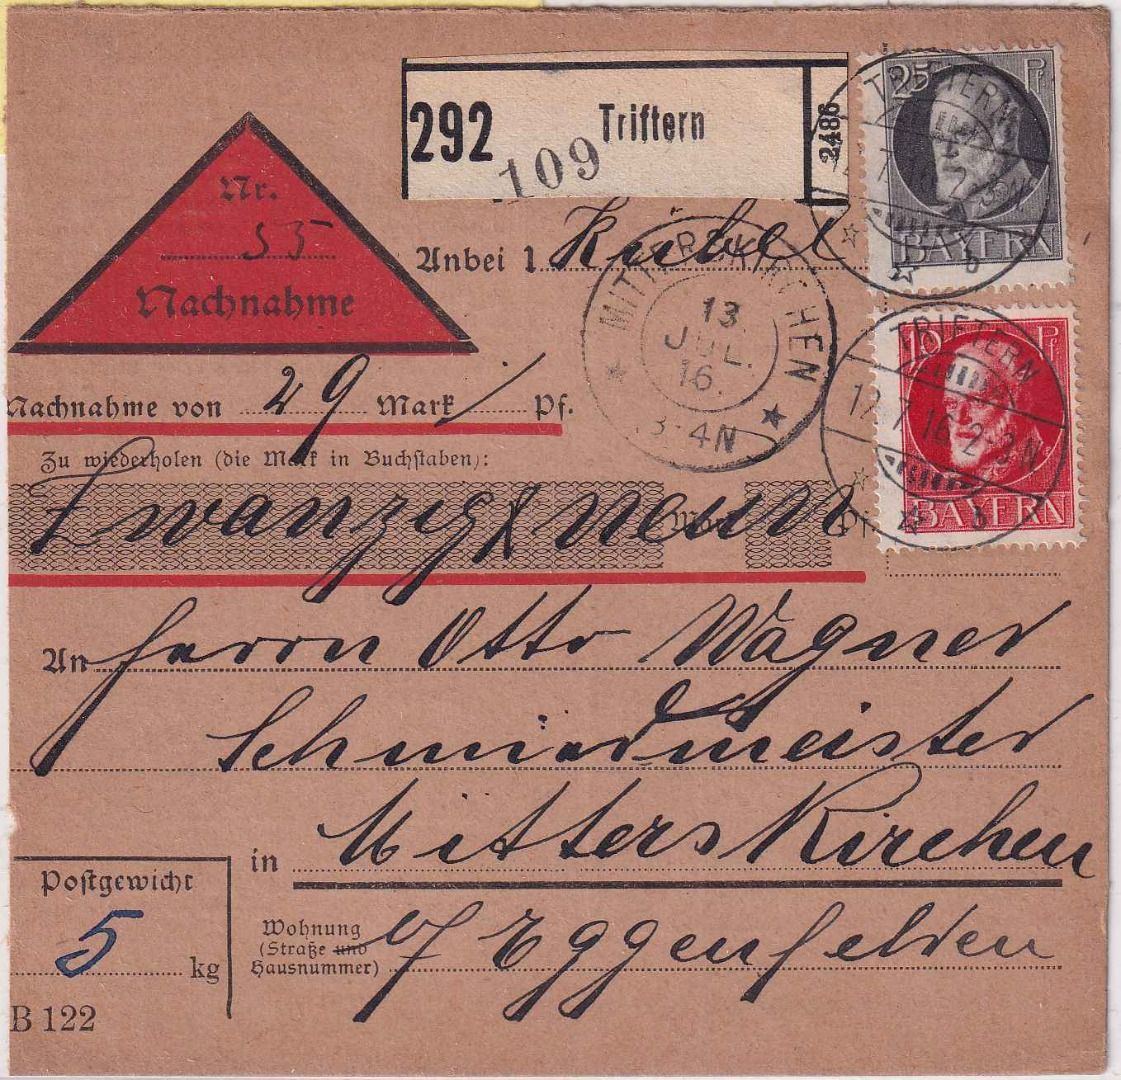 292 Triftern 2486
109
25 Pf
BAYERN
TRIFTERN
b
Nr.
55
Nachnahme
Anbei 1 Kübel
MITTERSKIRCHEN
13
JUL.
16.
3-4N
10 Pf
BAYERN
TRIFTERN
12.7.16.2-3N
b
Nachnahme von 29 Mark Pf.
Zu wiederholen (die Mark in Buchstaben):
Zwanzig & neun Mark Pf
An Herrn Otto Wagner
Schmiedmeister
in Mitterskirchen
Postgewicht
5 kg
Wohnung
(Straße und
Hausnummer)
Eggenfelden
B 122